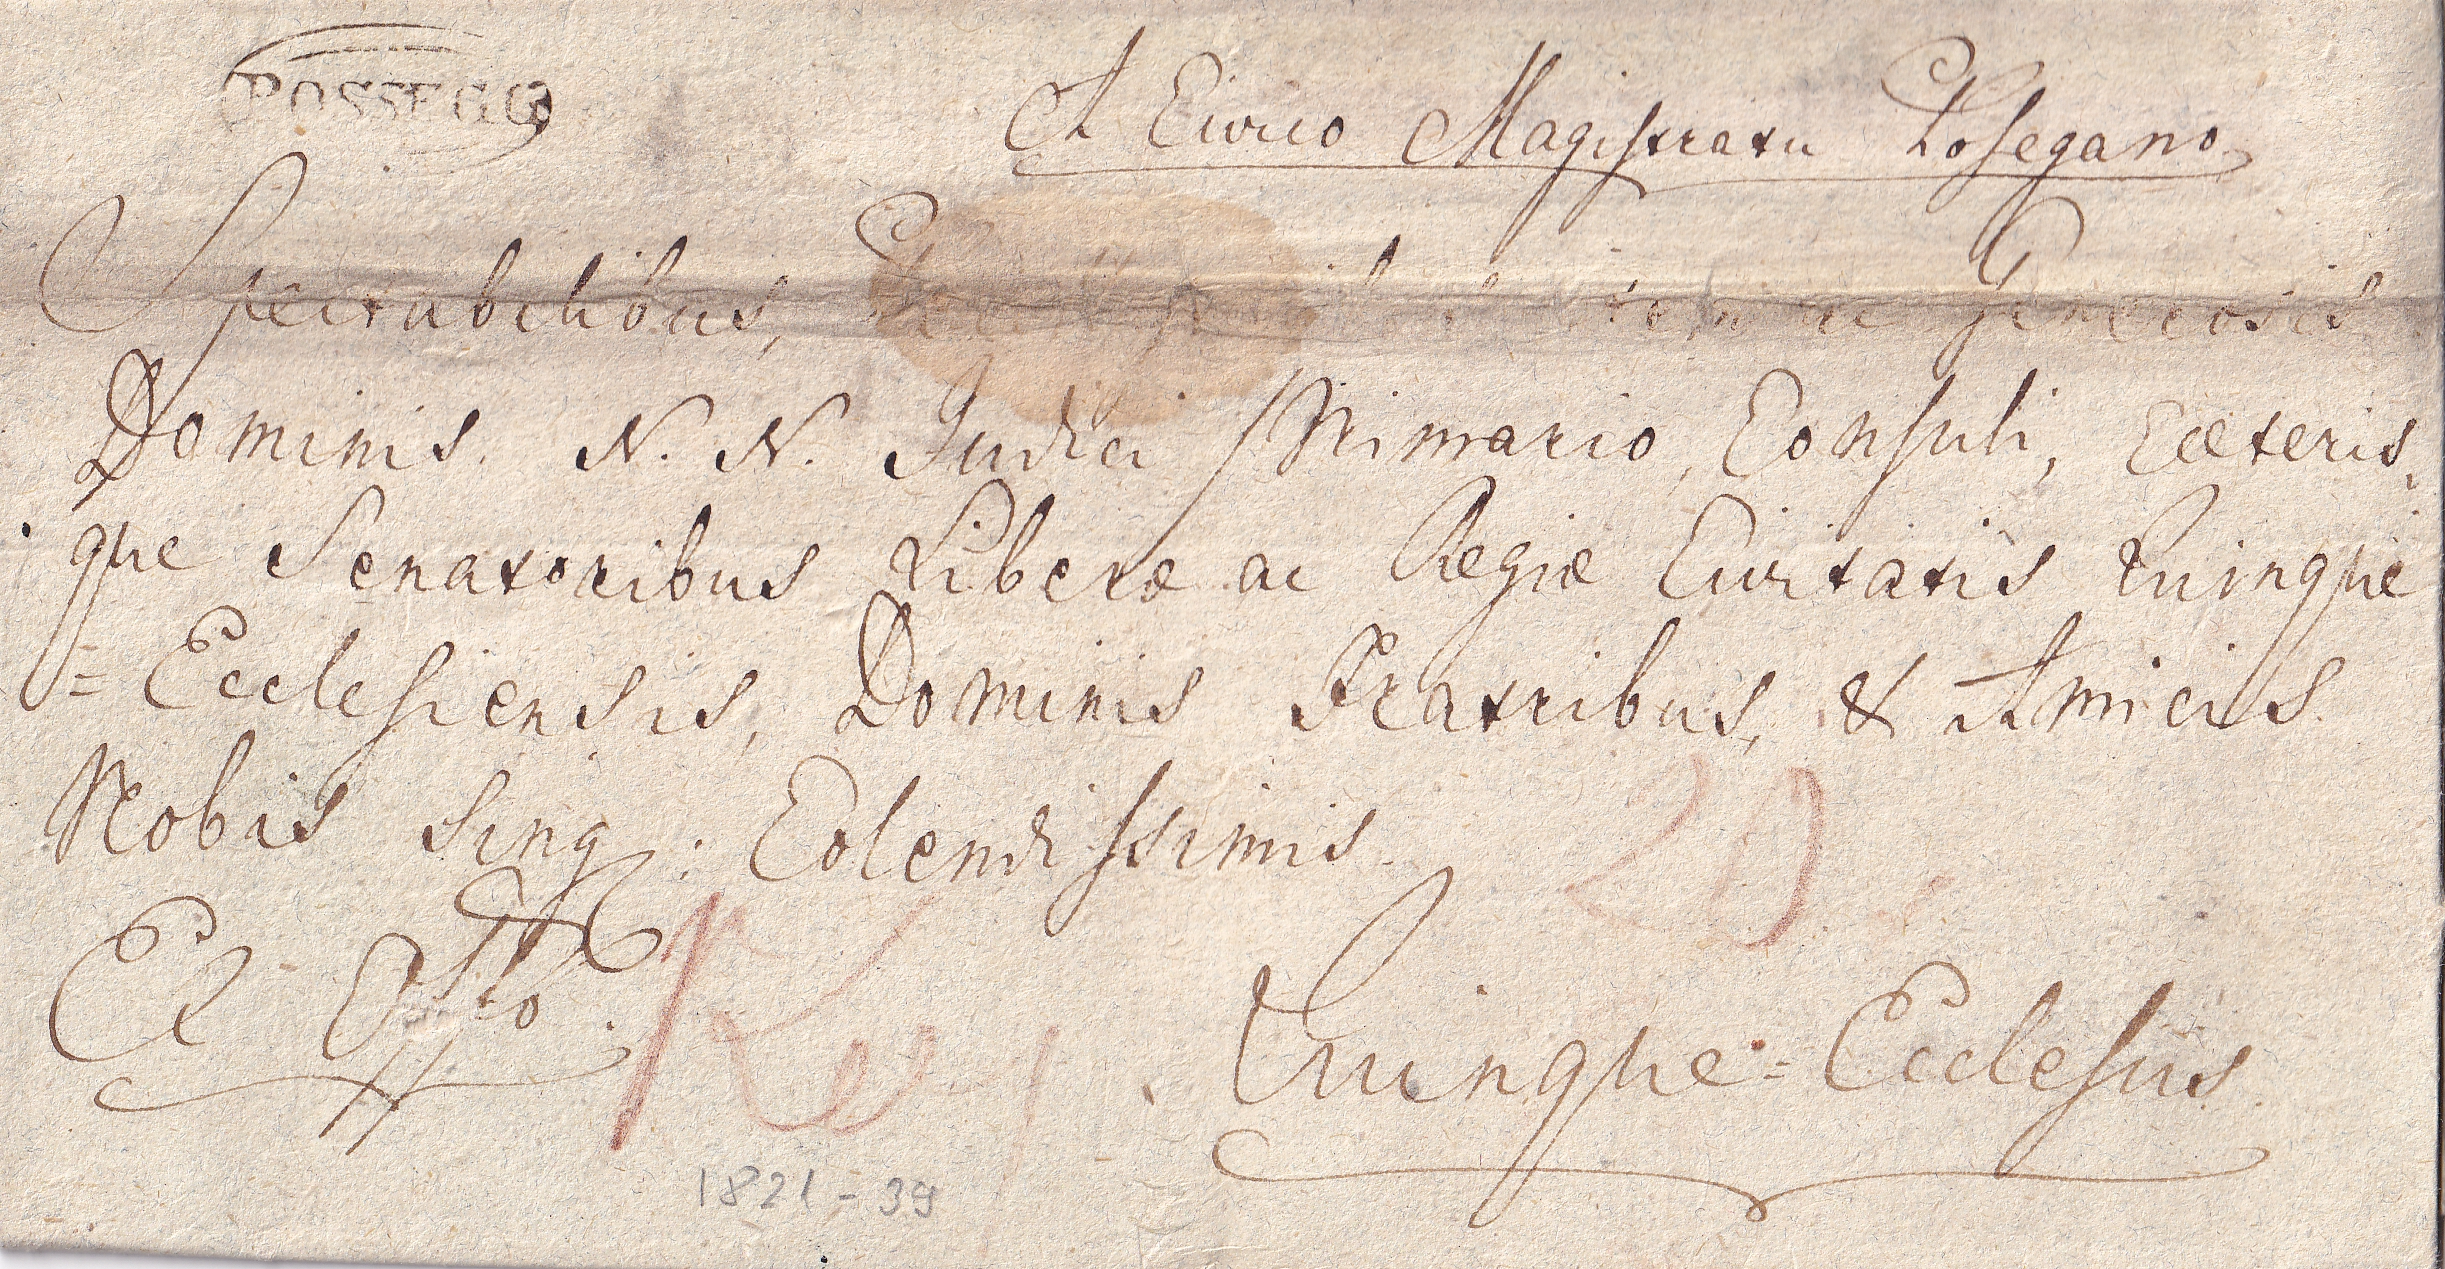 POSSEGG
A Civico Magistratu Posegano
Spectabilibus, ac Generosis
Dominis N. N. Judici Primario, Consuli, Cæteris,
que Senatoribus Liberæ ac Regiæ Civitatis Quinque
=Ecclesiensis, Dominis Fratribus, & Amicis
Nobis Sing: Colendissimis.
Ex Offo.
Quinque=Ecclesiis
1821-39